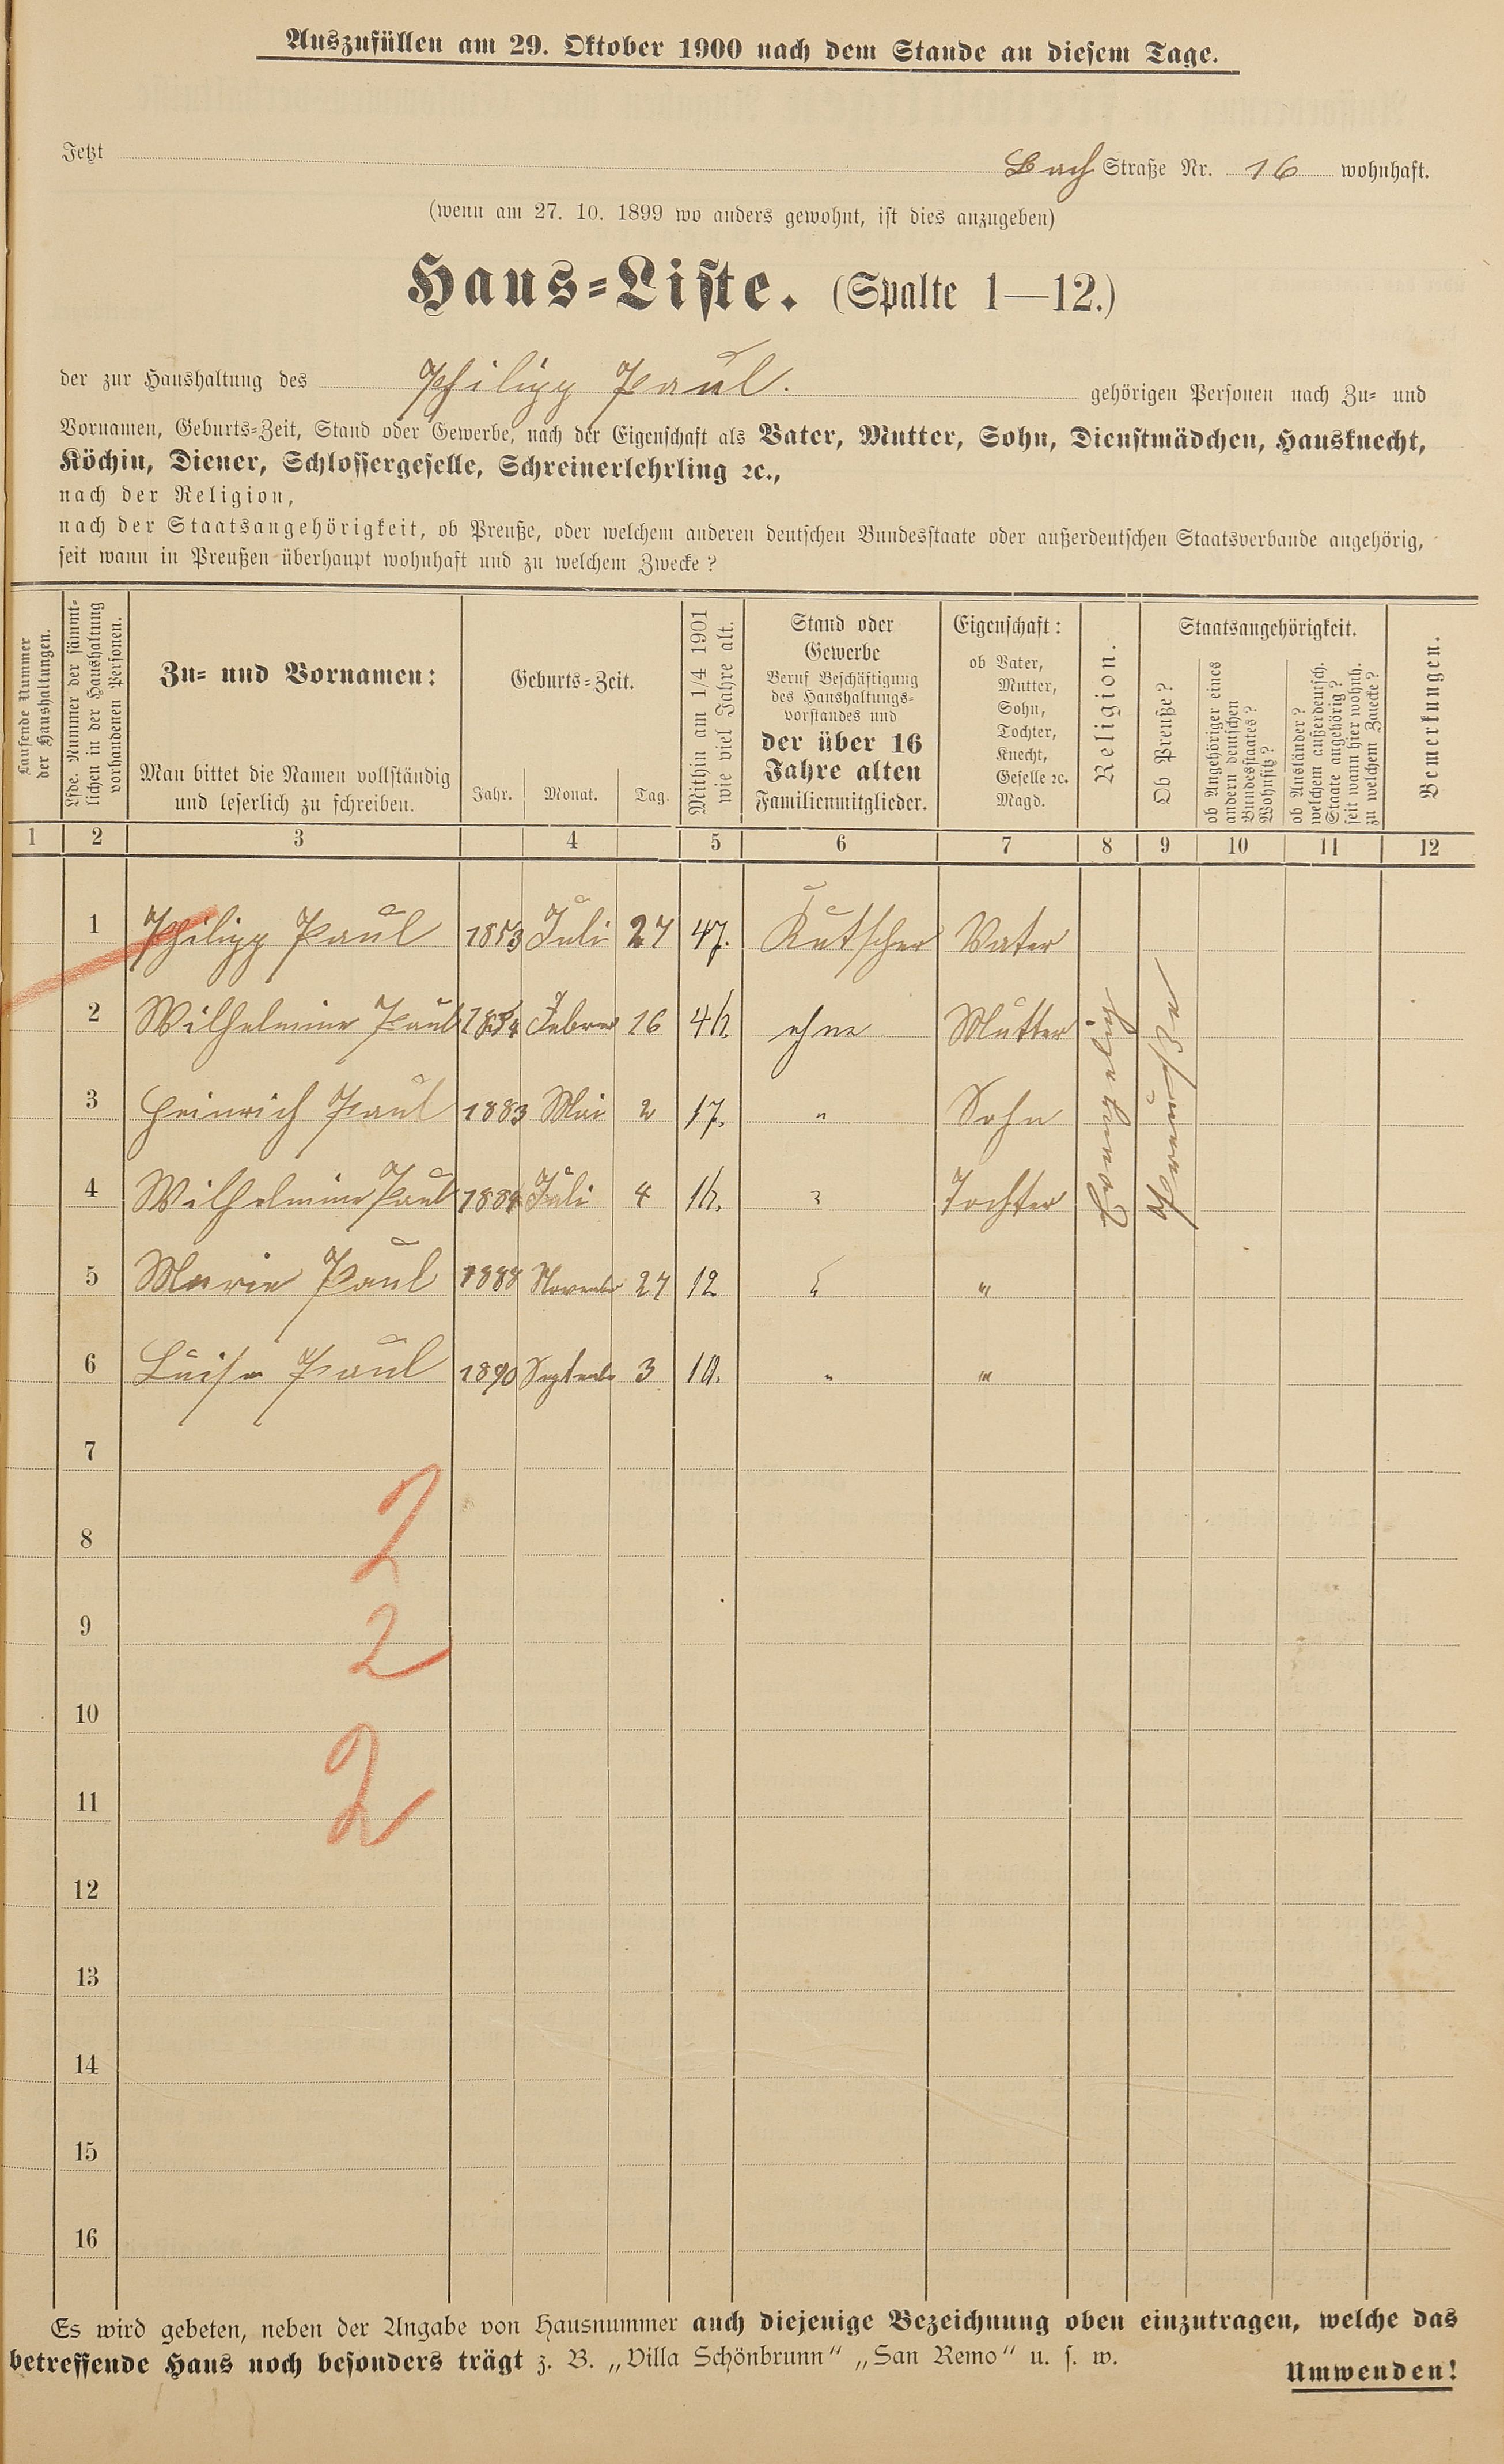 Auszufüllen am 29. Oktober 1900 nach dem Stande an diesem Tage.
Jetzt Bach Straße Nr. 16 wohnhaft.
(wenn am 27. 10. 1899 wo anders gewohnt, ist dies anzugeben)
Haus=Liste. (Spalte 1—12.)
der zur Haushaltung des Philipp Paul. gehörigen Personen nach Zu= und
Vornamen, Geburts=Zeit, Stand oder Gewerbe, nach der Eigenschaft als Vater, Mutter, Sohn, Dienstmädchen, Hausknecht,
Köchin, Diener, Schlossergeselle, Schreinerlehrling ꝛc.,
nach der Religion,
nach der Staatsangehörigkeit, ob Preuße, oder welchem anderen deutschen Bundesstaate oder außerdeutschen Staatsverbande angehörig,
seit wann in Preußen überhaupt wohnhaft und zu welchem Zwecke?
Laufende Nummer
der Haushaltungen.
Lfde. Nummer der sämmt=
lichen in der Haushaltung
vorhandenen Personen.
Zu= und Vornamen:
Man bittet die Namen vollständig
und leserlich zu schreiben.
Geburts=Zeit.
Jahr. Monat. Tag.
Mithin am 1/4 1901
wie viel Jahre alt.
Stand oder
Gewerbe
Beruf Beschäftigung
des Haushaltungs=
vorstandes und
der über 16
Jahre alten
Familienmitglieder.
Eigenschaft:
ob Vater,
Mutter,
Sohn,
Tochter,
Knecht,
Geselle ꝛc.
Magd.
Religion.
Staatsangehörigkeit.
Ob Preuße?
ob Angehöriger eines
andern deutschen
Bundesstaates?
Wohnsitz?
ob Ausländer?
welchem außerdeutsch.
Staate angehörig?
seit wann hier wohnh.
zu welchem Zwecke?
Bemerkungen.
1 2 3 4 5 6 7 8 9 10 11 12
1 Philipp Paul 1853 Juli 27 47. Kutscher Vater
2 Wilhelmine Paul 1854 Februar 16 46. ohne Mutter
3 Heinrich Paul 1883 Mai 2 17. " Sohn
4 Wilhelmine Paul 1884 Juli 4 16. " Tochter
5 Marie Paul 1888 November 27 12 " "
6 Luise Paul 1890 September 3 10. " "
Evangelisch
Preuße
7
8
9
10
11
12
13
14
15
16
2
2
2
Es wird gebeten, neben der Angabe von Hausnummer auch diejenige Bezeichnung oben einzutragen, welche das
betreffende Haus noch besonders trägt z. B. „Villa Schönbrunn“ „San Remo“ u. s. w.
Umwenden!